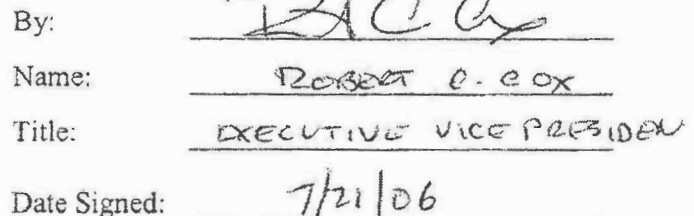 By:
Name: ROBERT C. COX
Title: EXECUTIVE VICE PRESIDEN
Date Signed: 7/21/06